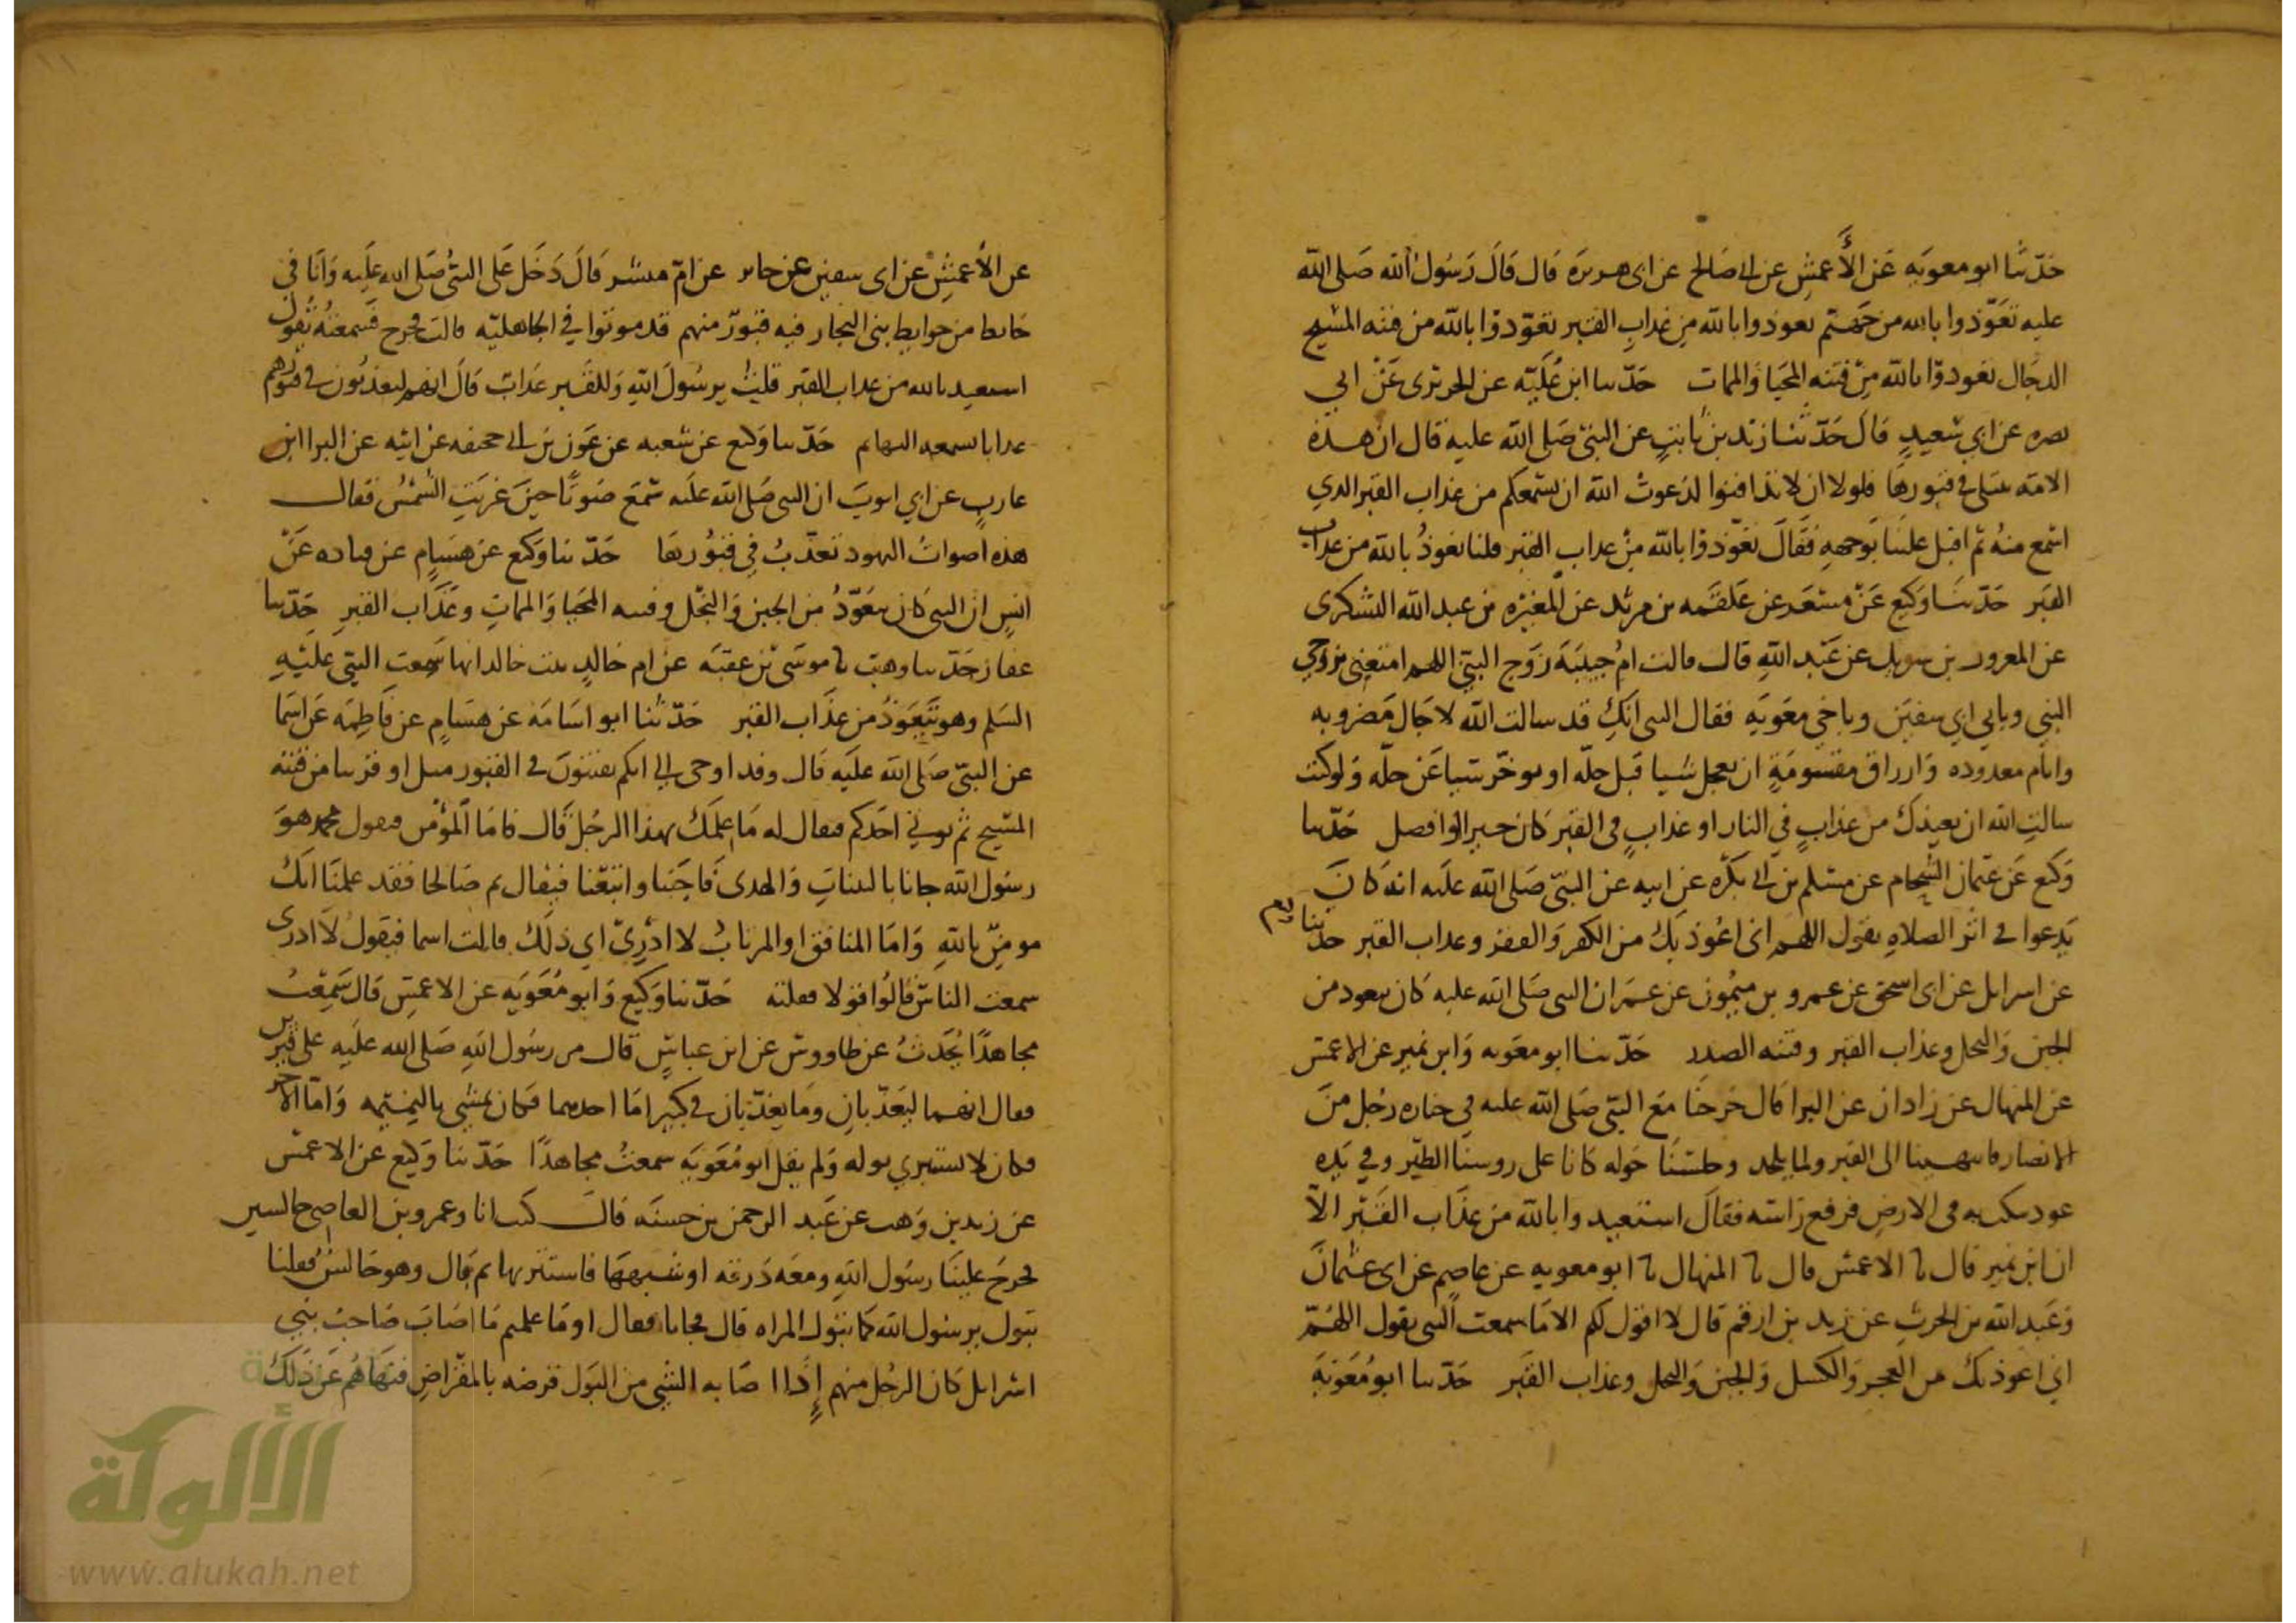 حدثنا ابو معوية عن الأعمش عن ابي صالح عن ابي هريرة قال قال رسول الله صلى الله
عليه تعوذوا بالله من جهنم تعوذوا بالله من عذاب القبر تعوذوا بالله من فتنه المسيح
الدجال تعوذوا بالله من فتنه المحيا والممات حدثنا ابن علية عن الجريري عن ابي
نضره عن ابي سعيد قال حدثنا زيد بن ثابت عن النبي صلى الله عليه قال ان هذه
الامة تبتلى في قبورها فلولا ان لا تدافنوا لدعوت الله ان يسمعكم من عذاب القبر الذي
اسمع منه ثم اقبل علينا بوجهه فقال تعوذوا بالله من عذاب القبر قلنا نعوذ بالله من عذاب
القبر حدثنا وكيع عن مسعر عن علقمه بن مرثد عن المغيره بن عبد الله اليشكري
عن المعرور بن سويد عن عبد الله قال قالت ام حبيبة زوج النبي اللهم امتعني بزوجي
النبي وبابي ابي سفين وباخي معويه فقال النبي انك قد سالت الله لاجال مضروبه
وايام معدوده وارزاق مقسومة ان يعجل شيا قبل حله او يوخر شيا عن حله ولو كنت
سالت الله ان يعيذك من عذاب في النار او عذاب في القبر كان خيرا او افضل حدثنا
وكيع عن عثمان الشحام عن مسلم بن ابي بكره عن ابيه عن النبي صلى الله عليه انه كان
يدعوا في اثر الصلاه يقول اللهم اني اعوذ بك من الكفر والفقر وعذاب القبر حدثنا وكيع
عن اسرايل عن ابي اسحق عن عمرو بن ميمون عن عمر ان النبي صلى الله عليه كان يتعوذ من
الجبن والبخل وعذاب القبر وفتنه الصدر حدثنا ابو معويه وابن نمير عن الاعمش
عن المنهال عن زادان عن البرا قال خرجنا مع النبي صلى الله عليه في جنازه رجل من
الانصار فانتهينا الى القبر ولما يلحد وجلسنا حوله كانا على روسنا الطير وفي يده
عود ينكت به في الارض فرفع راسه فقال استعيدوا بالله من عذاب القبر الا
ان ابن نمير قال نا الاعمش قال نا المنهال نا ابو معويه عن عاصم عن ابي عثمان
وعبد الله بن الحرث عن زيد بن ارقم قال لا اقول لكم الا ما سمعت النبي يقول اللهم
اني اعوذ بك من العجز والكسل والجبن والبخل وعذاب القبر حدثنا ابو معوية
عن الأعمش عن ابي سفين عن جابر عن ام مبشر قال دخل على النبي صلى الله عليه وانا في
حايط من حوايط بني النجار فيه قبور منهم قد موتوا في الجاهليه قالت فخرج فسمعته يقول
استعيد بالله من عذاب القبر قلت يرسول الله وللقبر عذاب قال انهم ليعذبون في قبورهم
عذابا تسمعه البهايم حدثنا وكيع عن شعبه عن عون بن ابي جحيفه عن ابيه عن البرا ابن
عازب عن ابي ايوب ان النبي صلى الله عليه سمع صوتا حين غربت الشمس فقال
هذه اصوات اليهود تعذب في قبورها حدثنا وكيع عن هشام عن قتاده عن
انس ان النبي كان يتعوذ من الجبن والبخل وفتنه المحيا والممات وعذاب القبر حدثنا
عفان حدثنا وهيب نا موسى بن عقبة عن ام خالد بنت خالد انها سمعت النبي عليه
السلم وهو يتعوذ من عذاب القبر حدثنا ابو اسامة عن هشام عن فاطمة عن اسما
عن النبي صلى الله عليه قال وقد اوحي الي انكم تفتنون في القبور مثل او قريبا من فتنه
المسيح ثم يوتى احدكم فيقال له ما علمك بهذا الرجل قال فاما المؤمن فيقول محمد هو
رسول الله جانا بالبينات والهدى فاجبنا واتبعنا فيقال نم صالحا فقد علمنا انك
مومن بالله واما المنافق او المرتاب لا ادري اي ذلك قالت اسما فيقول لا ادري
سمعت الناس قالوا قولا فقلته حدثنا وكيع وابو معوية عن الاعمش قال سمعت
مجاهدا يحدث عن طاووس عن ابن عباس قال مر رسول الله صلى الله عليه على قبرين
فقال انهما ليعذبان وما يعذبان في كبير اما احدهما فكان يمشي بالنميمه واما الاخر
فكان لا يستبري بوله ولم يقل ابو معوية سمعت مجاهدا حدثنا وكيع عن الاعمش
عن زيد بن وهب عن عبد الرحمن بن حسنه قال كنت انا وعمرو بن العاص جالسين
فخرج علينا رسول الله ومعه درقه او شبهها فاستتر بها ثم بال وهو جالس فقلنا
تبول يرسول الله كما تبول المراه قال فجانا فقال او ما علمتم ما اصاب صاحب بني
اسرايل كان الرجل منهم إذا اصابه الشي من البول قرضه بالمقراض فنهاهم عن ذلك
الألوكة
www.alukah.net